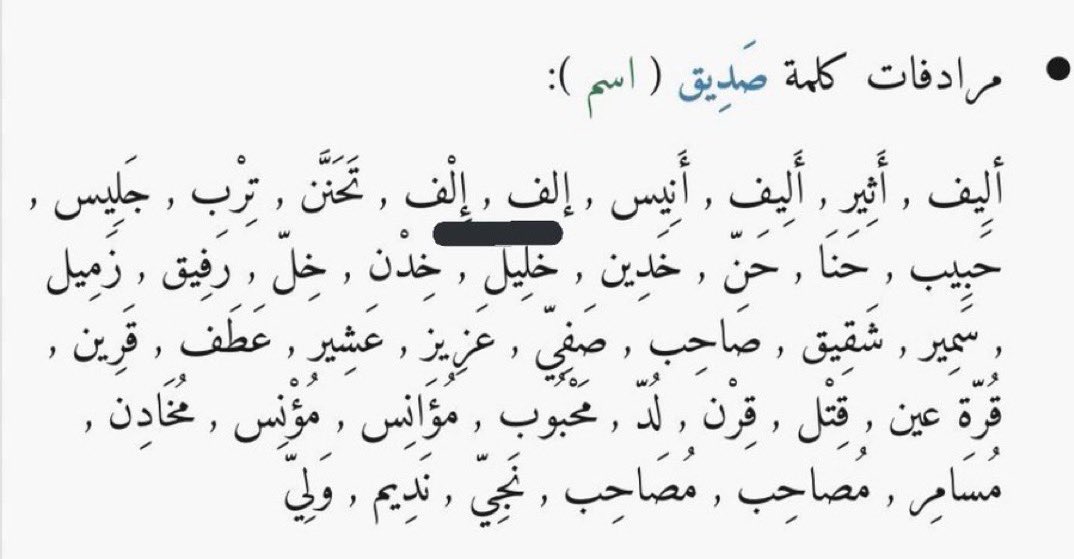 • مرادفات كلمة صَدِيق ( اسم ):
أَلِيف , أَثِير , أَلِيف , أَنِيس , إلف , إِلْف , تَحَنَّن , تِرْب , جَلِيس ,
حَبِيب , حَنَا , حَنّ , خَدِين , خَلِيل , خِدْن , خِلّ , رَفِيق , زَمِيل
, سَمِير , شَقِيق , صَاحِب , صَفِيّ , عَزِيز , عَشِير , عَطَف , قَرِين ,
قُرّة عين , قِتْل , قِرْن , لُدّ , مَحْبُوب , مُؤَانِس , مُؤْنِس , مُخَادِن ,
مُسَامِر , مُصاحِب , مُصَاحِب , نَجِيّ , نَدِيم , وَلِيّ